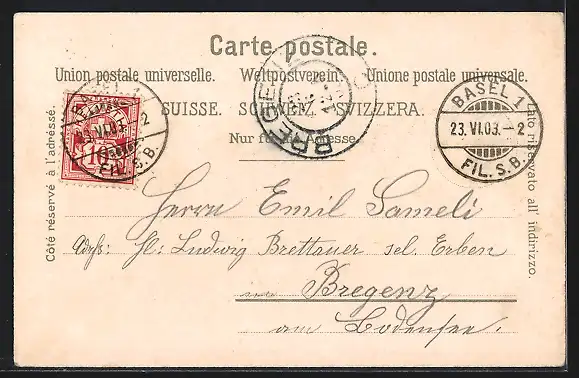 Carte postale.
Union postale universelle. Weltpostverein. Unione postale universale.
SUISSE. SCHWEIZ. SVIZZERA.
Nur für die Adresse.
Côté réservé à l'adresse.
Lato riservato all' indirizzo.
HELVETIA
10
23.VI.03. 2
FIL. S. B.
BREGENZ
BASEL 1
23.VI.03. - 2
FIL. S. B.
Herrn Emil Sameli
Adrß: H: Ludwig Brettauer sel. Erben
in Bregenz
am Bodensee.